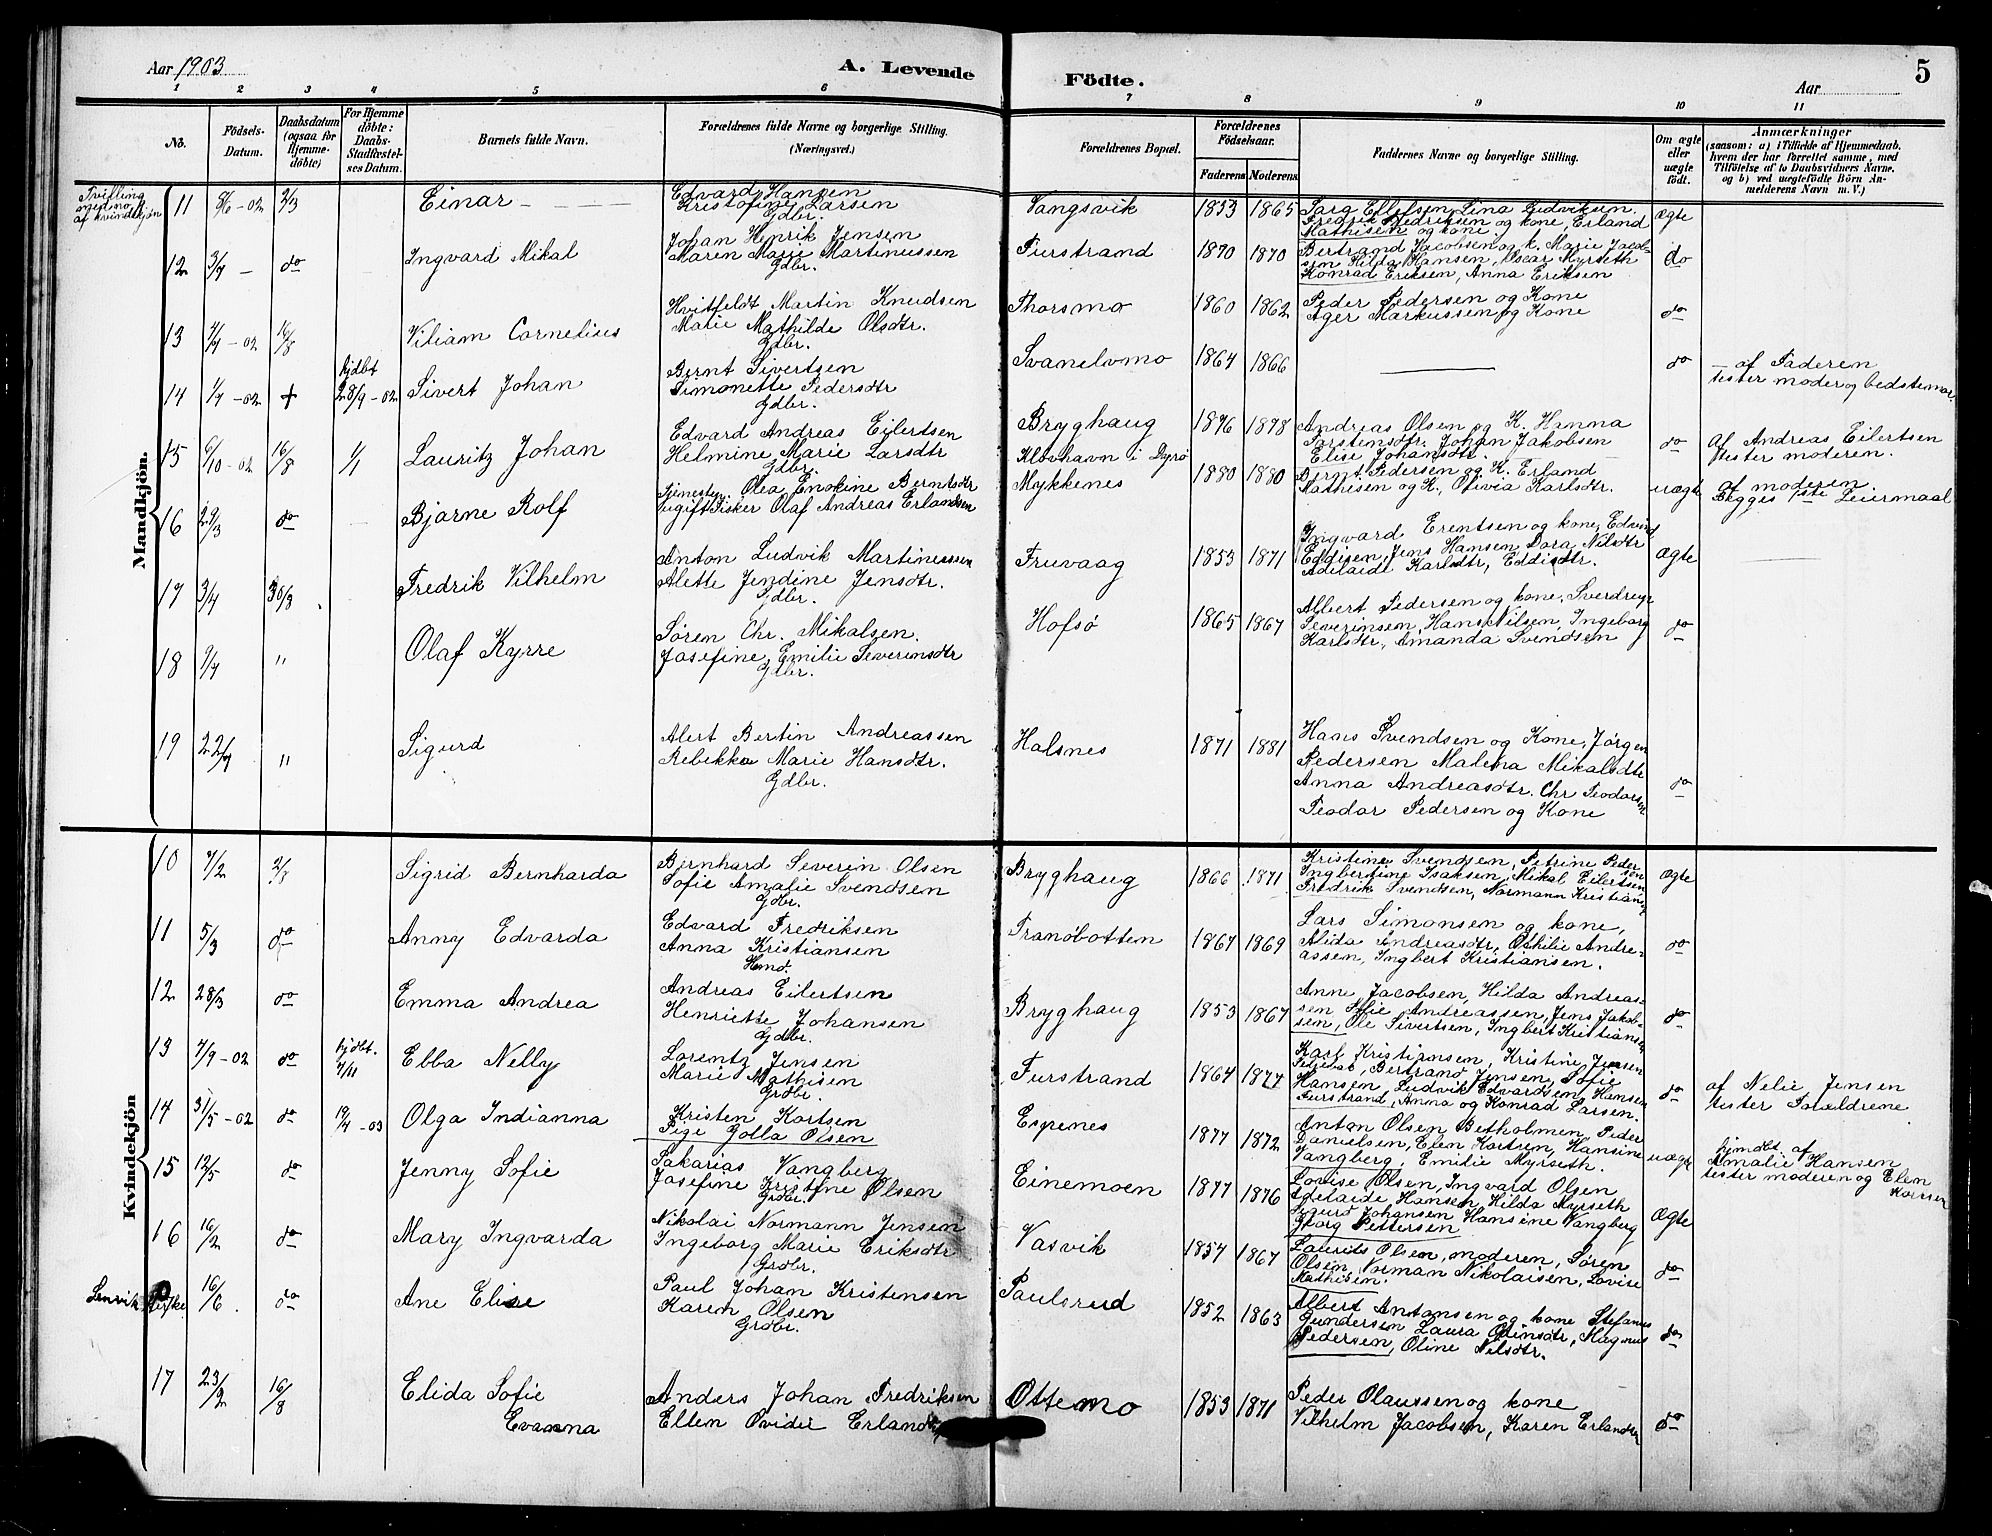 Aar 1903
A. Levende
Födte.
5
Aar
1 2 3 4 5 6 7 8 9 10 11
No.
Födsels-
Datum.
Daabsdatum
(ogsaa for
Hjemme-
döbte)
For Hjemme
döbte:
Daabs-
Stadfæstel-
ses Datum.
Barnets fulde Navn.
Forældrenes fulde Navne og borgerlige Stilling.
(Næringsvei.)
Forældrenes Bopæl.
Forældrenes
Födselsaar.
Faderens Moderens
Faddernes Navne og borgerlige Stilling.
Om ægte
eller
uægte
födt.
Anmærkninger
(saasom: a) i Tilfælde af Hjemmedaab.
hvem der har forrettet samme, med
Tilföielse af to Daabsvidners Navne.
og b) ved uægtefödte Börn An-
melderens Navn m. V.)
Mandkjön.
Tvilling
med no
af kvindekjøn
11 8/6-02 2/3
Einar
Edvard Hansen
Kristofine Larsen
Gdbr.
Vangsvik
1853 1865
Lina Ludviksen.
Fredrik Fredriksen og kone, Erland
Mathisen og kone
ægte
12 3/7 - do
Ingvard Mikal
Johan Henrik Jensen
Maren Marie Martinussen
Gdbr.
Furstrand
1870 1870
Bertrand Jacobsen og k. Marie Jacob-
sen Hilda Hansen, Oscar Myrseth
Konrad Eriksen, Anna Eriksen
do
13 7/7-02 16/8
Viliam Cornelius
Hvitfeldt Martin Knudsen
Marie Mathilde Olsdtr.
Gdbr.
Thorsmo
1860 1862
Peder Pedersen og Kone
Ager Markussen og Kone
do
14 1/7-02 +
hjdbt
28/9-02
Sivert Johan
Bernt Sivertsen
Simonette Pedersdtr
Gdbr.
Svanelvmo
1864 1866
do
- af Faderen
tester moder og bedstemor.
15 6/10-02 16/8 1/1
Lauritz Johan
Edvard Andreas Eilertsen
Helmine Marie Larsdtr
Gdbr.
Bryghaug
1876 1878
Andreas Olsen og K. Hanna
Torstensdtr. Johan Jakobsen
Elise Johansdtr.
do
af Andreas Eilertsen
tester moderen.
16 29/3 do
Bjarne Rolf
Tjenestep. Olea Enokine Berntsdtr
ugift Fisker Olaf Andreas Erlandsen
Kløvhavn i Dyrø
Mykkenes
1880 1880
Bernt Pedersen og K. Erland
Mathisen og K. Olivia Karlsdtr.
uægte
af moderen
Begges 1ste Leiermaal
17 3/4 30/3
Fredrik Vilhelm
Anton Ludvik Martinussen
Alette Jendine Jensdtr.
Gdbr.
Fruvaag
1853 1871
Ingvard Erentsen og kone, Edvind
Eddisen, Jens Hansen, Dora Nilsdtr
Adelaide Karlsdtr, Eddisdtr.
ægte
18 9/4 "
Olaf Kyrre
Søren Chr. Mikalsen.
Josefine Emilie Severinsdtr
Gdbr.
Hofsø
1865 1867
Albert Pedersen og kone, Sverdrup
Severinsen, Hans Nilsen, Ingeborg
Karlsdtr, Amanda Svendsen
do
19 22/4 "
Sigurd
Alert Bertin Andreassen
Rebekka Marie Hansdtr.
Gdbr.
Halsnes
1871 1881
Hans Svendsen og Kone, Jørgen
Pedersen Malena Mikalsdtr
Anna Andreasdtr. Chr Teodorsen
Teodor Pedersen og Kone
do
Kvindekjön
10 7/2 2/8
Sigrid Bernharda
Bernhard Severin Olsen
Sofie Amalie Svendsen
Gdbr.
Bryghaug
1866 1871
Kristine Svendsen, Petrine Peder
sen
Ingbertine Isaksen, Mikal Eilertsen
Fredrik Svendsen, Normann Kristiansen
ægte
11 5/3 do
Anny Edvarda
Edvard Fredriksen
Anna Kristiansen
Hmd.
Tranøbotten
1867 1869
Lars Simonsen og kone,
Alida Andreasdtr, Othilie Andre-
assen, Ingbert Kristiansen.
do
12 28/3 do
Emma Andrea
Andreas Eilertsen
Henriette Johansen
Gdbr.
Bryghaug
1853 1867
Anne Jacobsen, Hilda Andreas-
sen, Sofie Andreassen, Jens Jakob-
sen, Ole Sivertsen, Ingbert Kristiansen
do
13 7/9-02 do
hjdbt.
7/11
Ebba Nelly
Lorentz Jensen
Marie Mathisen
Grdbr.
Furstrand
1864 1877
Karl Kristiansen, Kristine Jensen
Bertrand Jensen, Sofie
Hansen, Ludvik Edvardsen, Hansen
Furstrand, Anna og Konrad Larsen.
do
af Nelie Jensen
tester Forældrene
14 31/5-02 do 19/4-03
Olga Indianna
Kristen Kortsen
Pige Golla Olsen
Espenes
1877 1872
Anton Olsen Betholmen, Peder
Danielsen, Elen Kortsen, Hansine
Vangberg, Emilie Myrseth.
uægte
hjmdbt. af
Amalie Hansen
tester moderen og Elen
Kortsen
15 12/5 do
Jenny Sofie
Sakarias Vangberg
Josefine Kristine Olsen
Grdbr.
Einemoen
1877 1876
Lovise Olsen, Ingvard Olsen
Adelaide Hansen, Hilda Myrseth
Sigurd Johansen Hansine Vangberg
Georg Pettersen
ægte
16 16/2 do
Mary Ingvarda
Nikolai Normann Jensen
Ingeborg Marie Eriksdtr
Grdbr.
Vasvik
1854 1867
Laurits Olsen, moderen, Søren
Olsen, Norman Nikolaisen, Lovise
Mathisen.
do
Lenvik
16/6 do
Ane Elise
Paul Johan Kristensen
Karen Olsen
Grdbr.
Paulsrud
1852 1863
Albert Antonsen og kone Stefanus
Gundersen Laura Odinsdtr, Magnus
Pedersen, Oline Nilsdtr.
do
17 23/2 16/8
Elida Sofie
Evanna
Anders Johan Fredriksen
Ellen Ovidie Erlandsdtr
Ottemo
1853 1871
Peder Olaussen og kone
Vilhelm Jacobsen, Karen Erlandsdtr
do